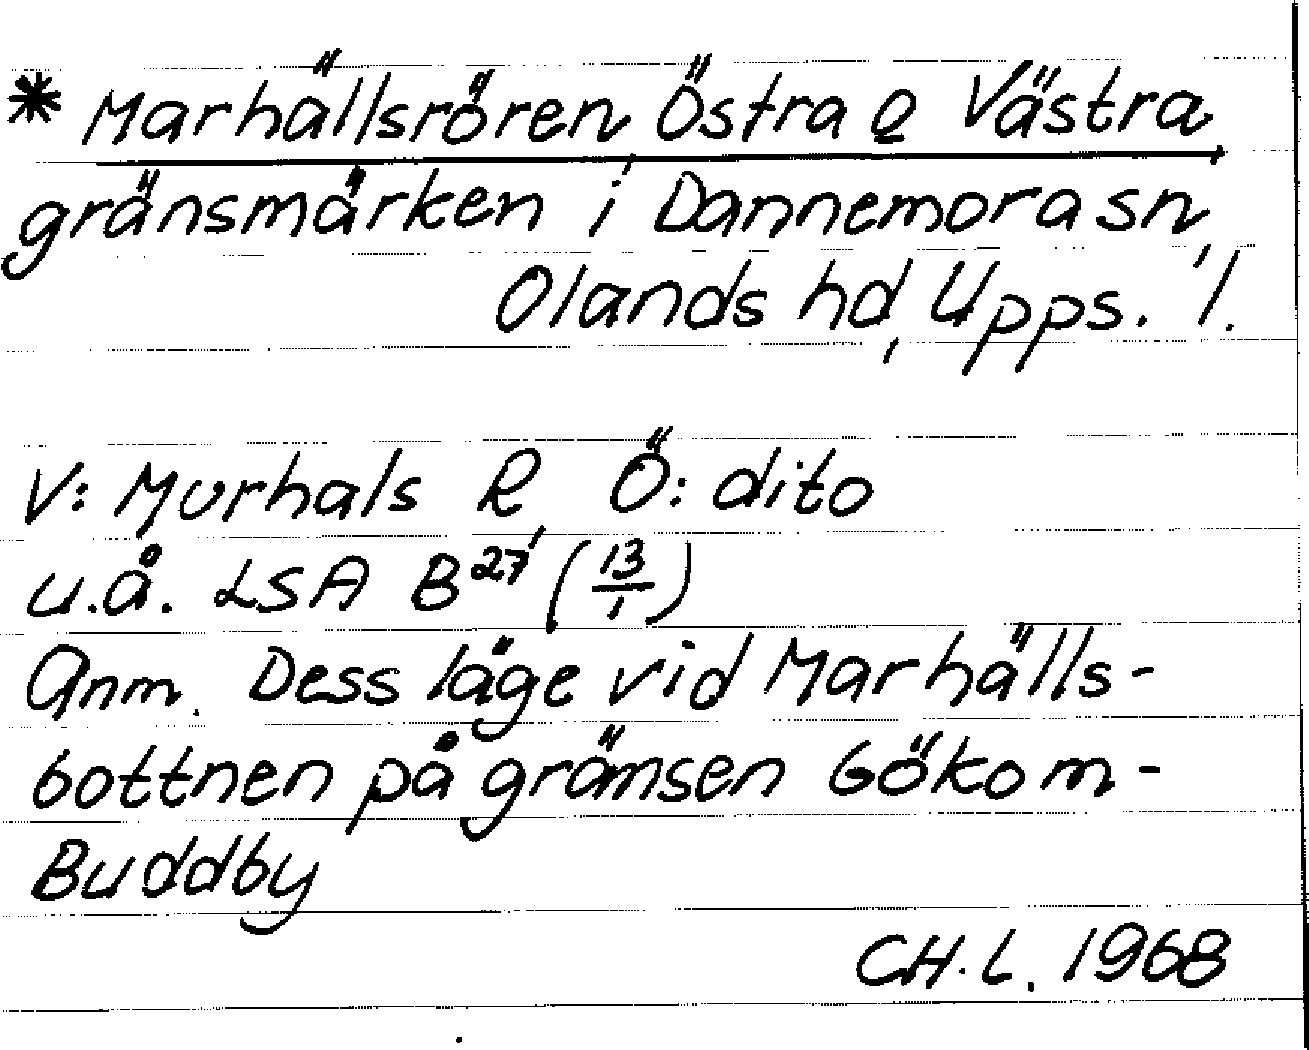 * Marhällsrören, Östra & Västra,
gränsmärken i Dannemora sn,
Olands hd, Upps. l.
V: Murhals R, Ö: dito
u.å. LSA B27 (13/1)
Anm. Dess läge vid Marhälls-
bottnen på gränsen Gökom-
Buddby
CH. L. 1968